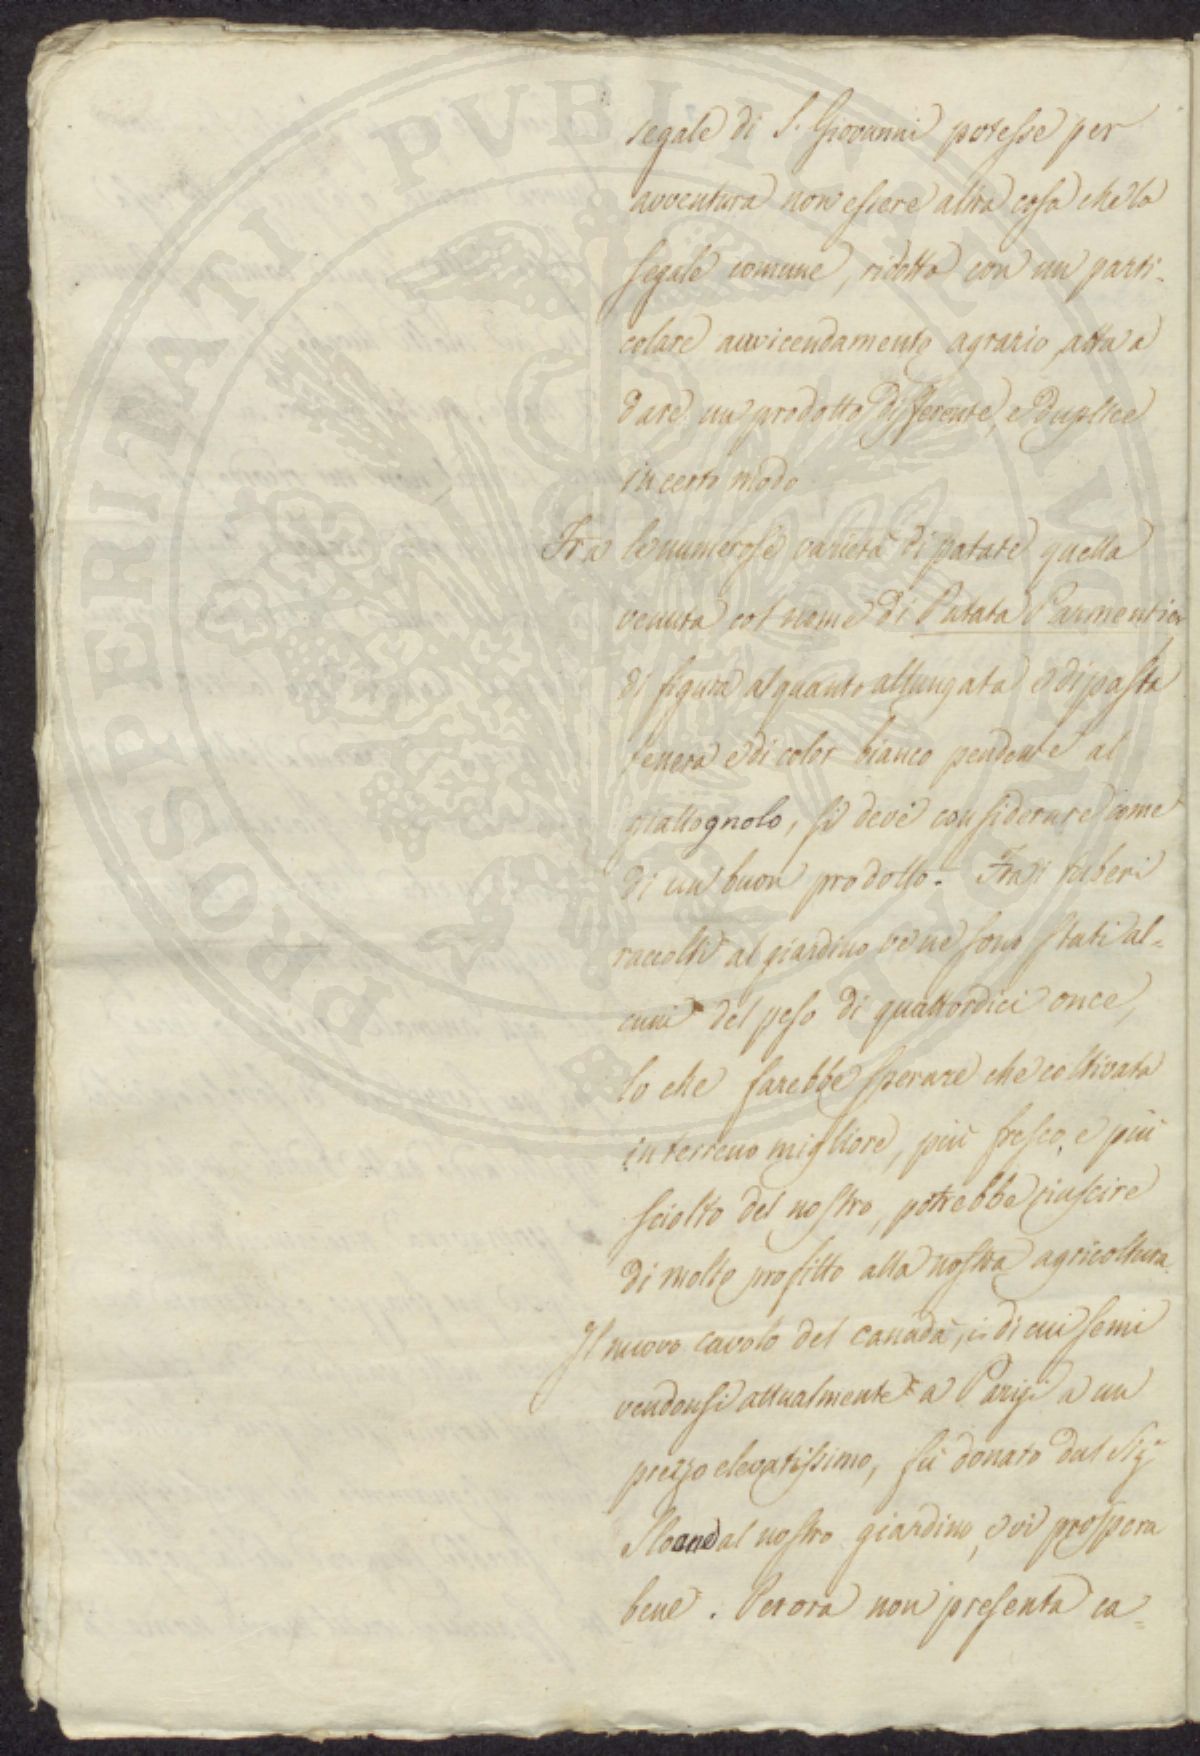 segale di S. Giovanni potesse per
avventura non essere altra cosa che la
segale comune, ridotta con un parti-
colare avvicendamento agrario atta a
dare un prodotto differente, e duplice
in certo modo
Fra le numerose varietà di patate quella
venuta col nome di Patata Parmentier
di figura alquanto allungata e di pasta
tenera e di color bianco pendente al
giallognolo, si deve considerare come
di un buon prodotto. Fra i tuberi
raccolti al giardino ve ne sono stati al=
cuni del peso di quattordici once,
lo che farebbe sperare che coltivata
in terreno migliore, più fresco, e più
sciolto del nostro, potrebbe riuscire
di molto profitto alla nostra agricoltura.
Il nuovo cavolo del Canadà, i di cui semi
vendonsi attualmente a Parigi a un
prezzo elevatissimo, fù donato dal Sigr
al nostro giardino, e vi prospera
bene. Per ora non presenta ca=
PROSPERITATI PUBLICAE